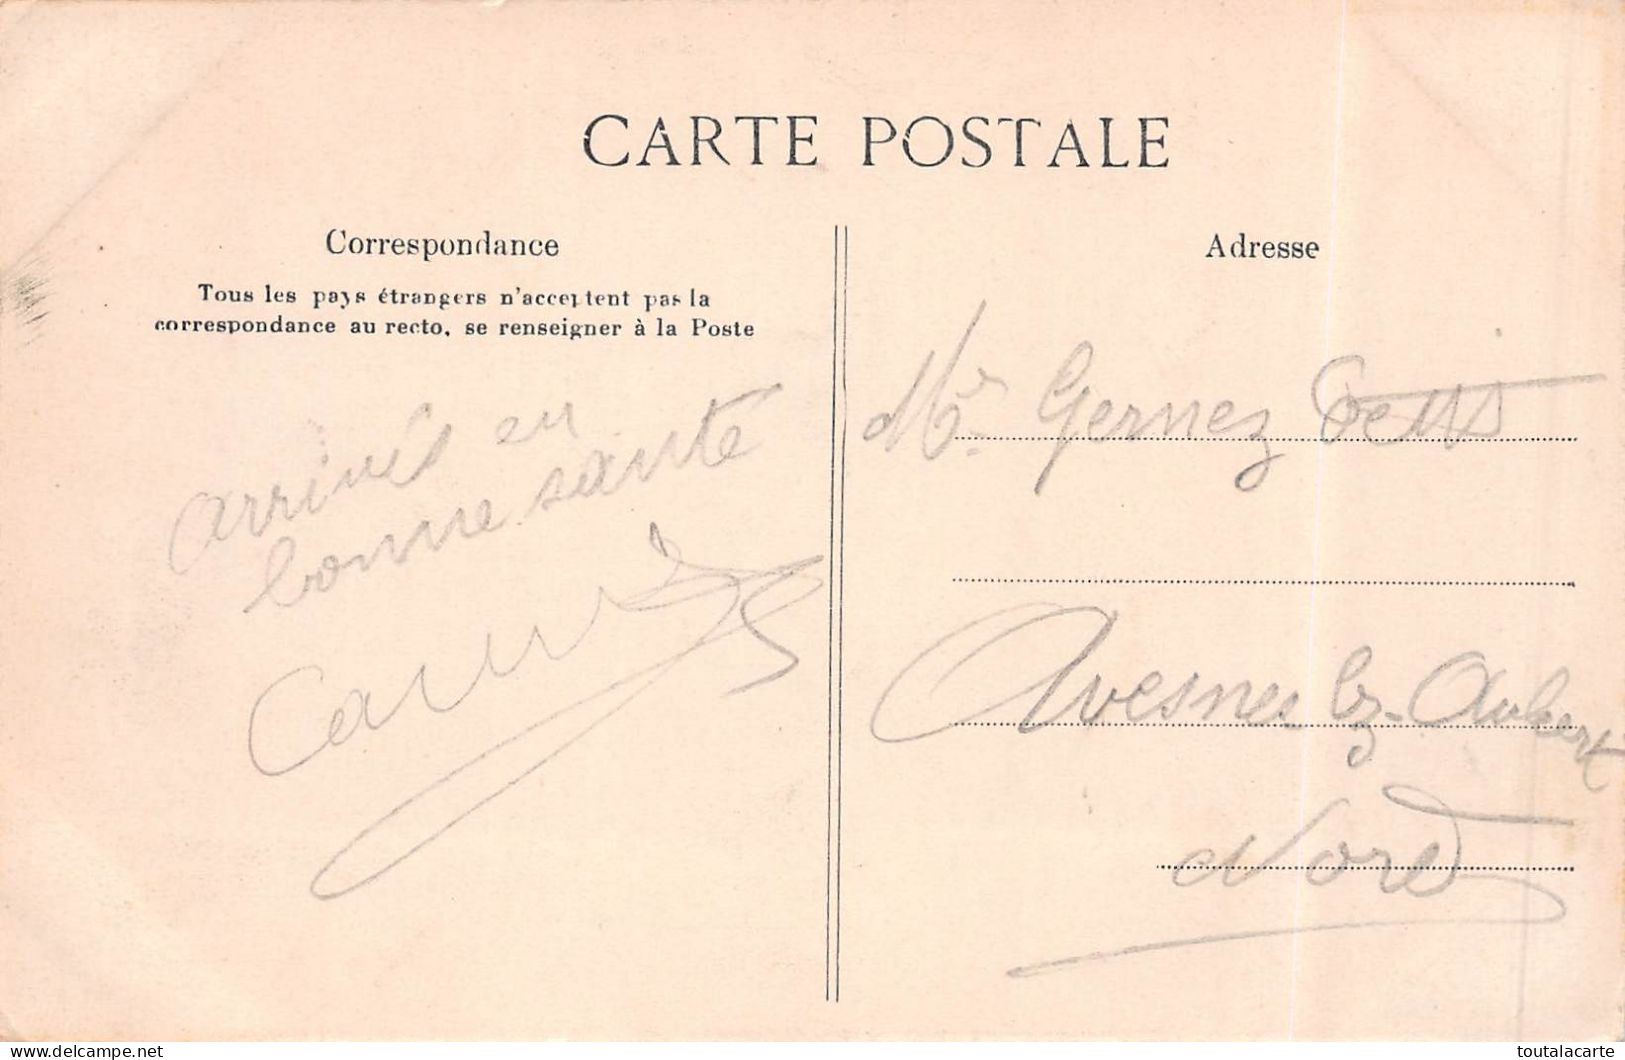 CARTE POSTALE
Correspondance
Tous les pays étrangers n'acceptent pas la
correspondance au recto, se renseigner à la Poste
arrivés en
bonne santé
Adresse
Mr Gernez
Avesnes lez-Aubert
Nord
toutalacarte